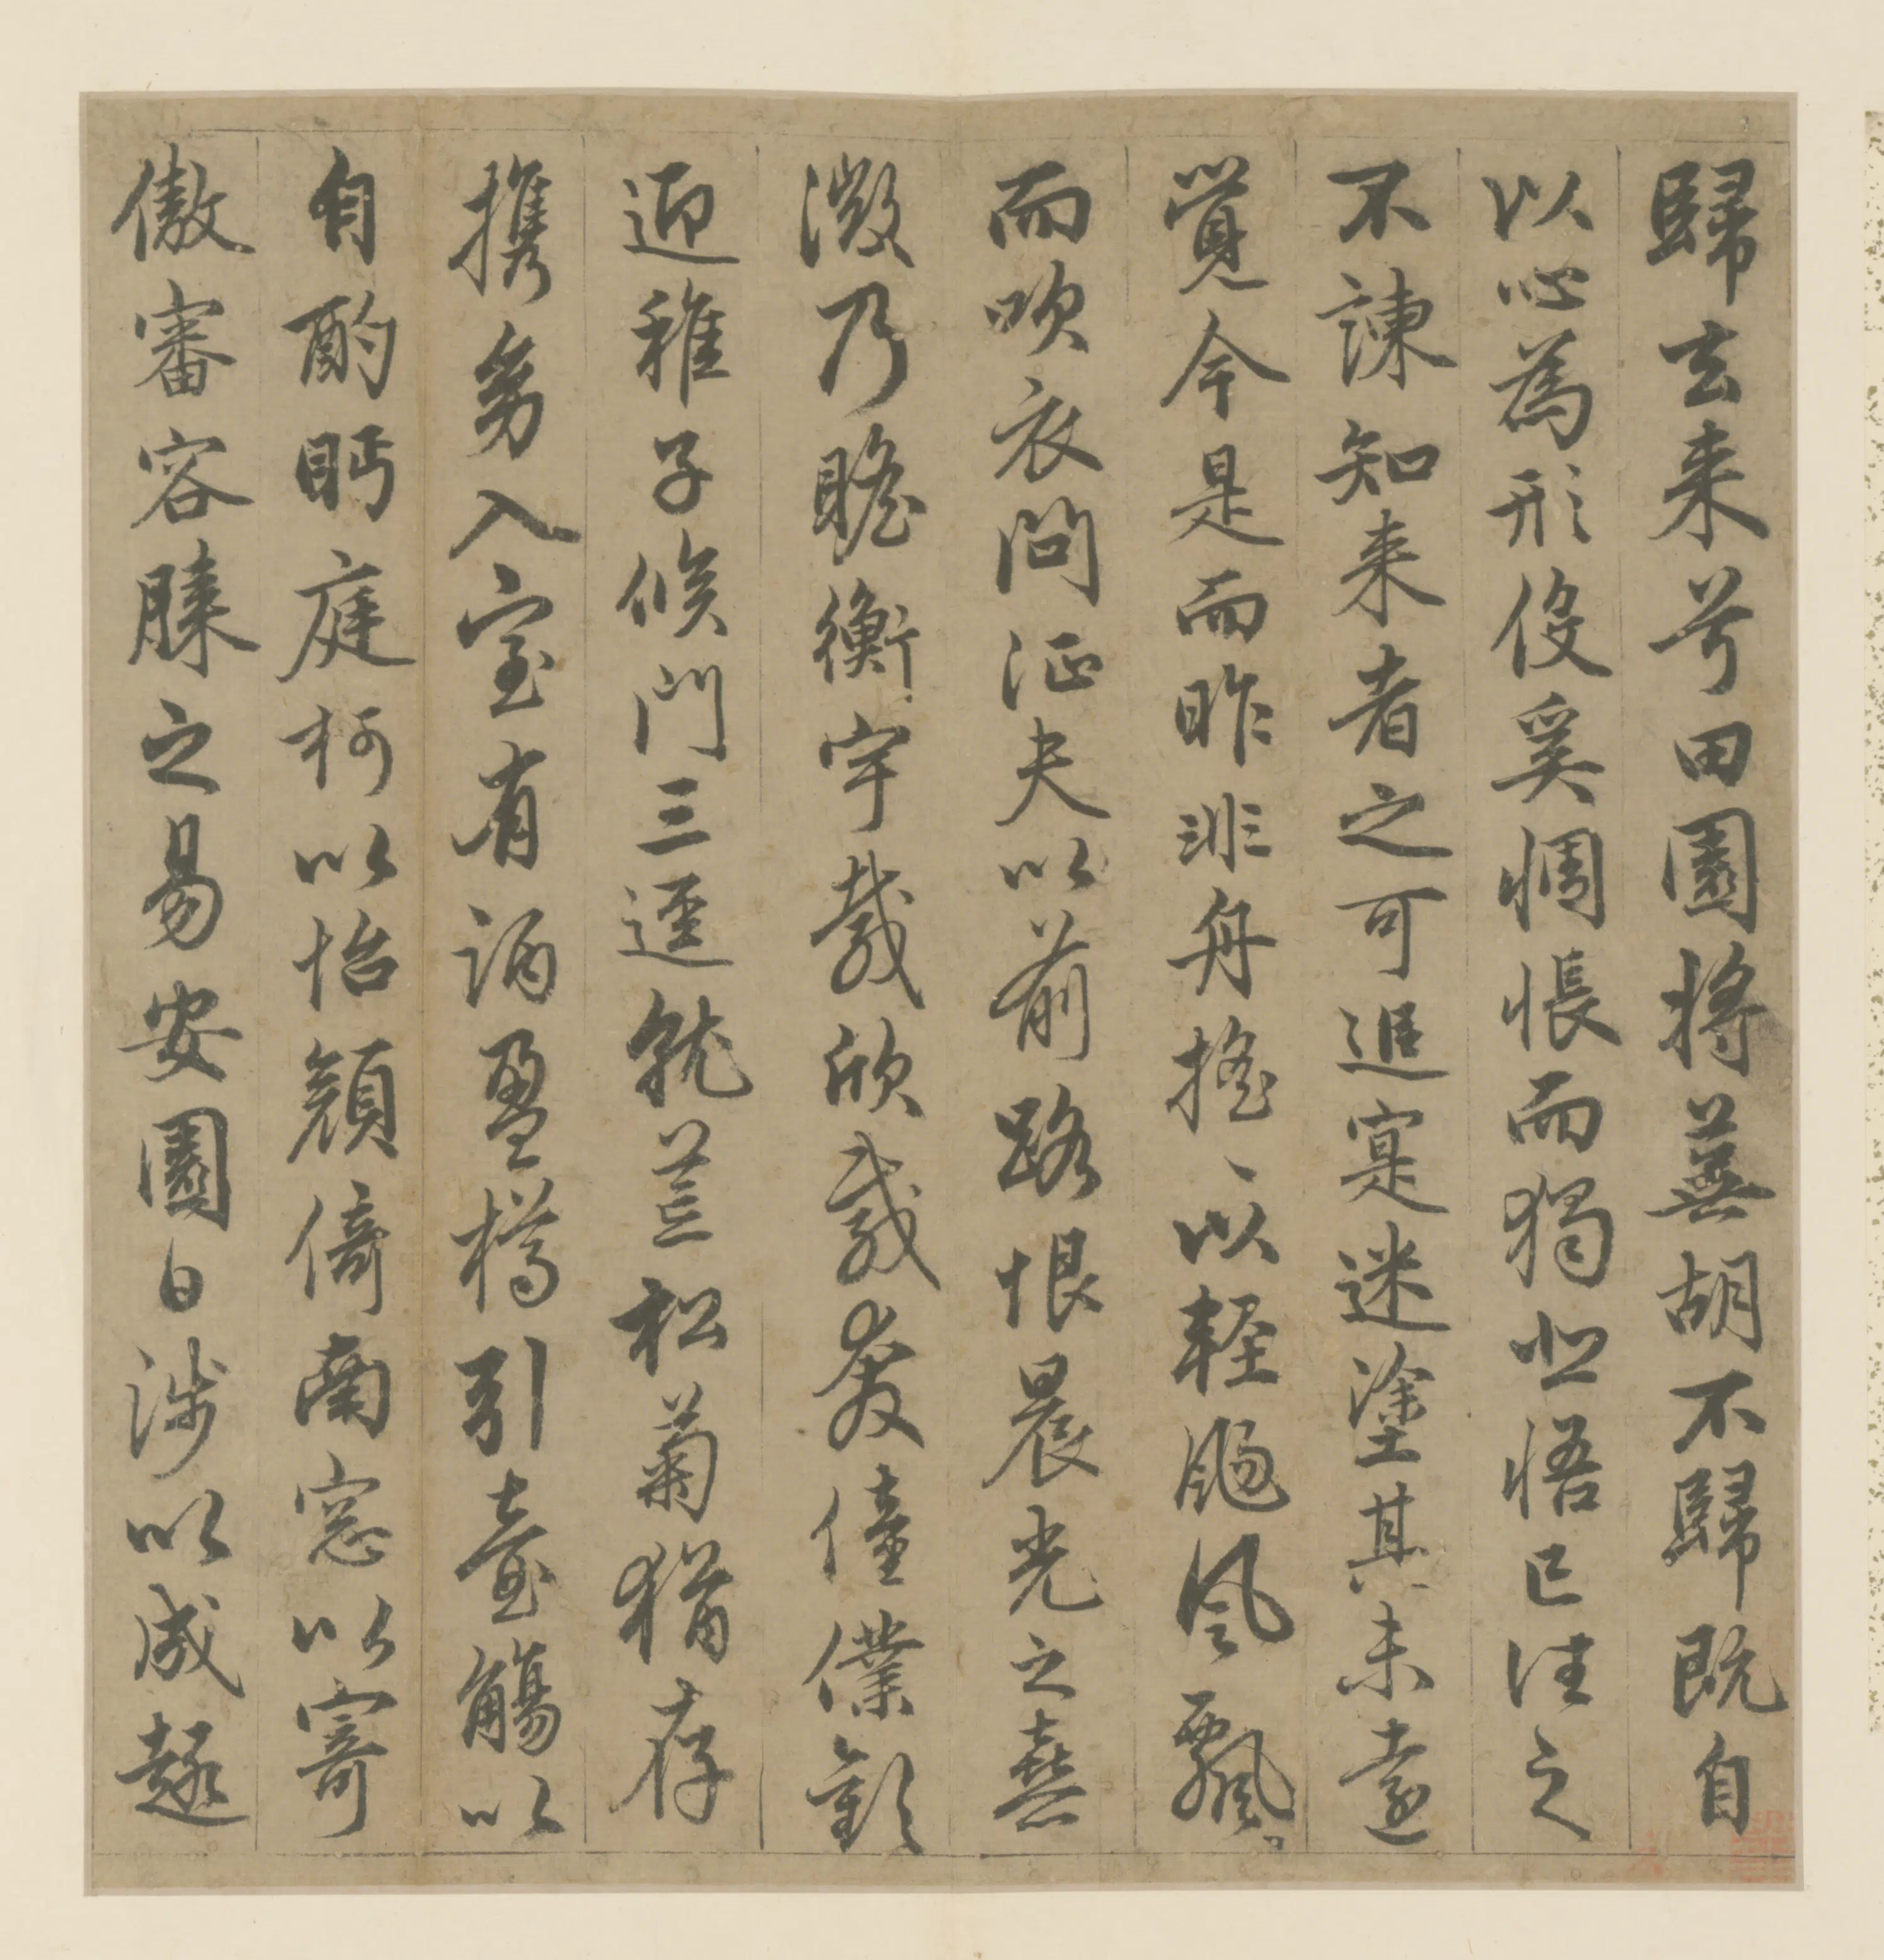 歸去来兮田園将蕪胡不歸既自
以心為形伇奚惆悵而獨悲悟已往之
不諫知来者之可追寔迷塗其未遠
覺今是而昨非舟摇〻以軽颺風飄〻
而吹衣問征夫以前路恨晨光之熹
微乃瞻衡宇載欣載奔僮僕歡
迎稚子候門三逕就荒松菊猶存
携幼入室有酒盈樽引壺觴以
自酌眄庭柯以怡顔倚南窓以寄
傲審容膝之易安園日涉以成趣